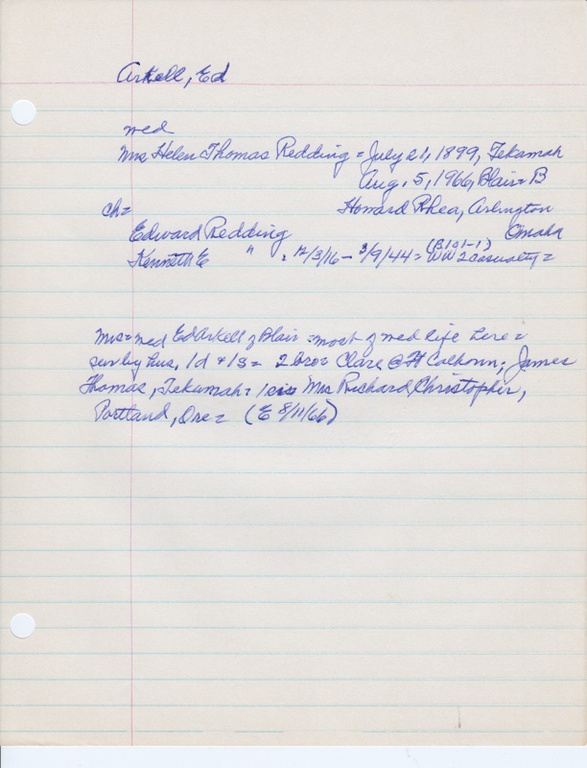 Arkell, Ed
med
Mrs Helen Thomas Redding = July 21, 1899, Tekamah
Aug. 5, 1966, Blair = B
ch = Howard Rhea, Arlington
Edward Redding Omaha
Kenneth E " . 12/3/16 - 3/9/44 = (B101-1) WW2 casualty =
Mrs = med Ed Arkell of Blair = most of med life here =
surv by hus, 1d + 1s = 2 bro = Clare @ Ft Calhoun; James
Thomas, Tekamah = 1 sis Mrs Richard Christopher,
Portland, Ore = (E 8/11/66)